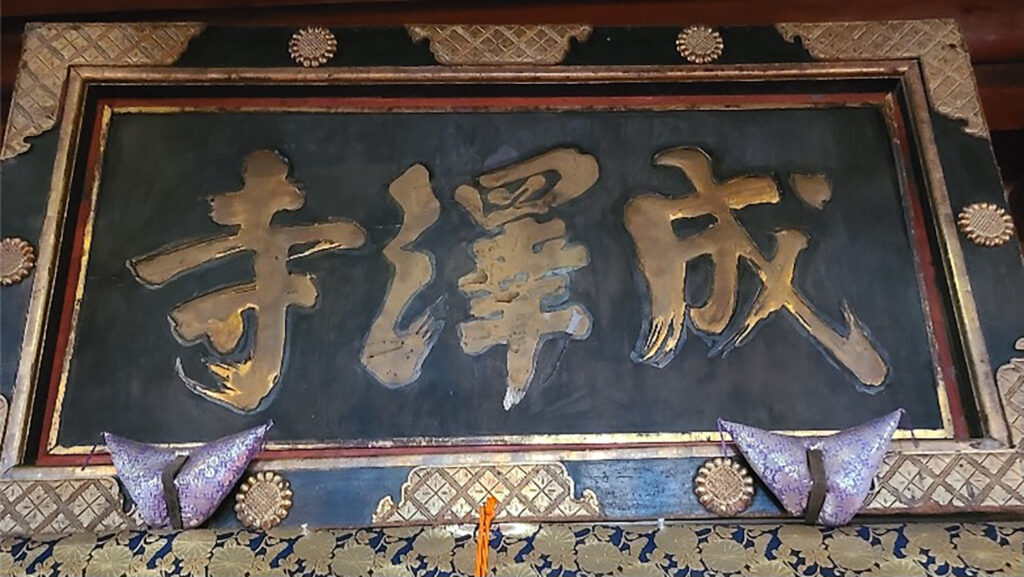 成澤寺